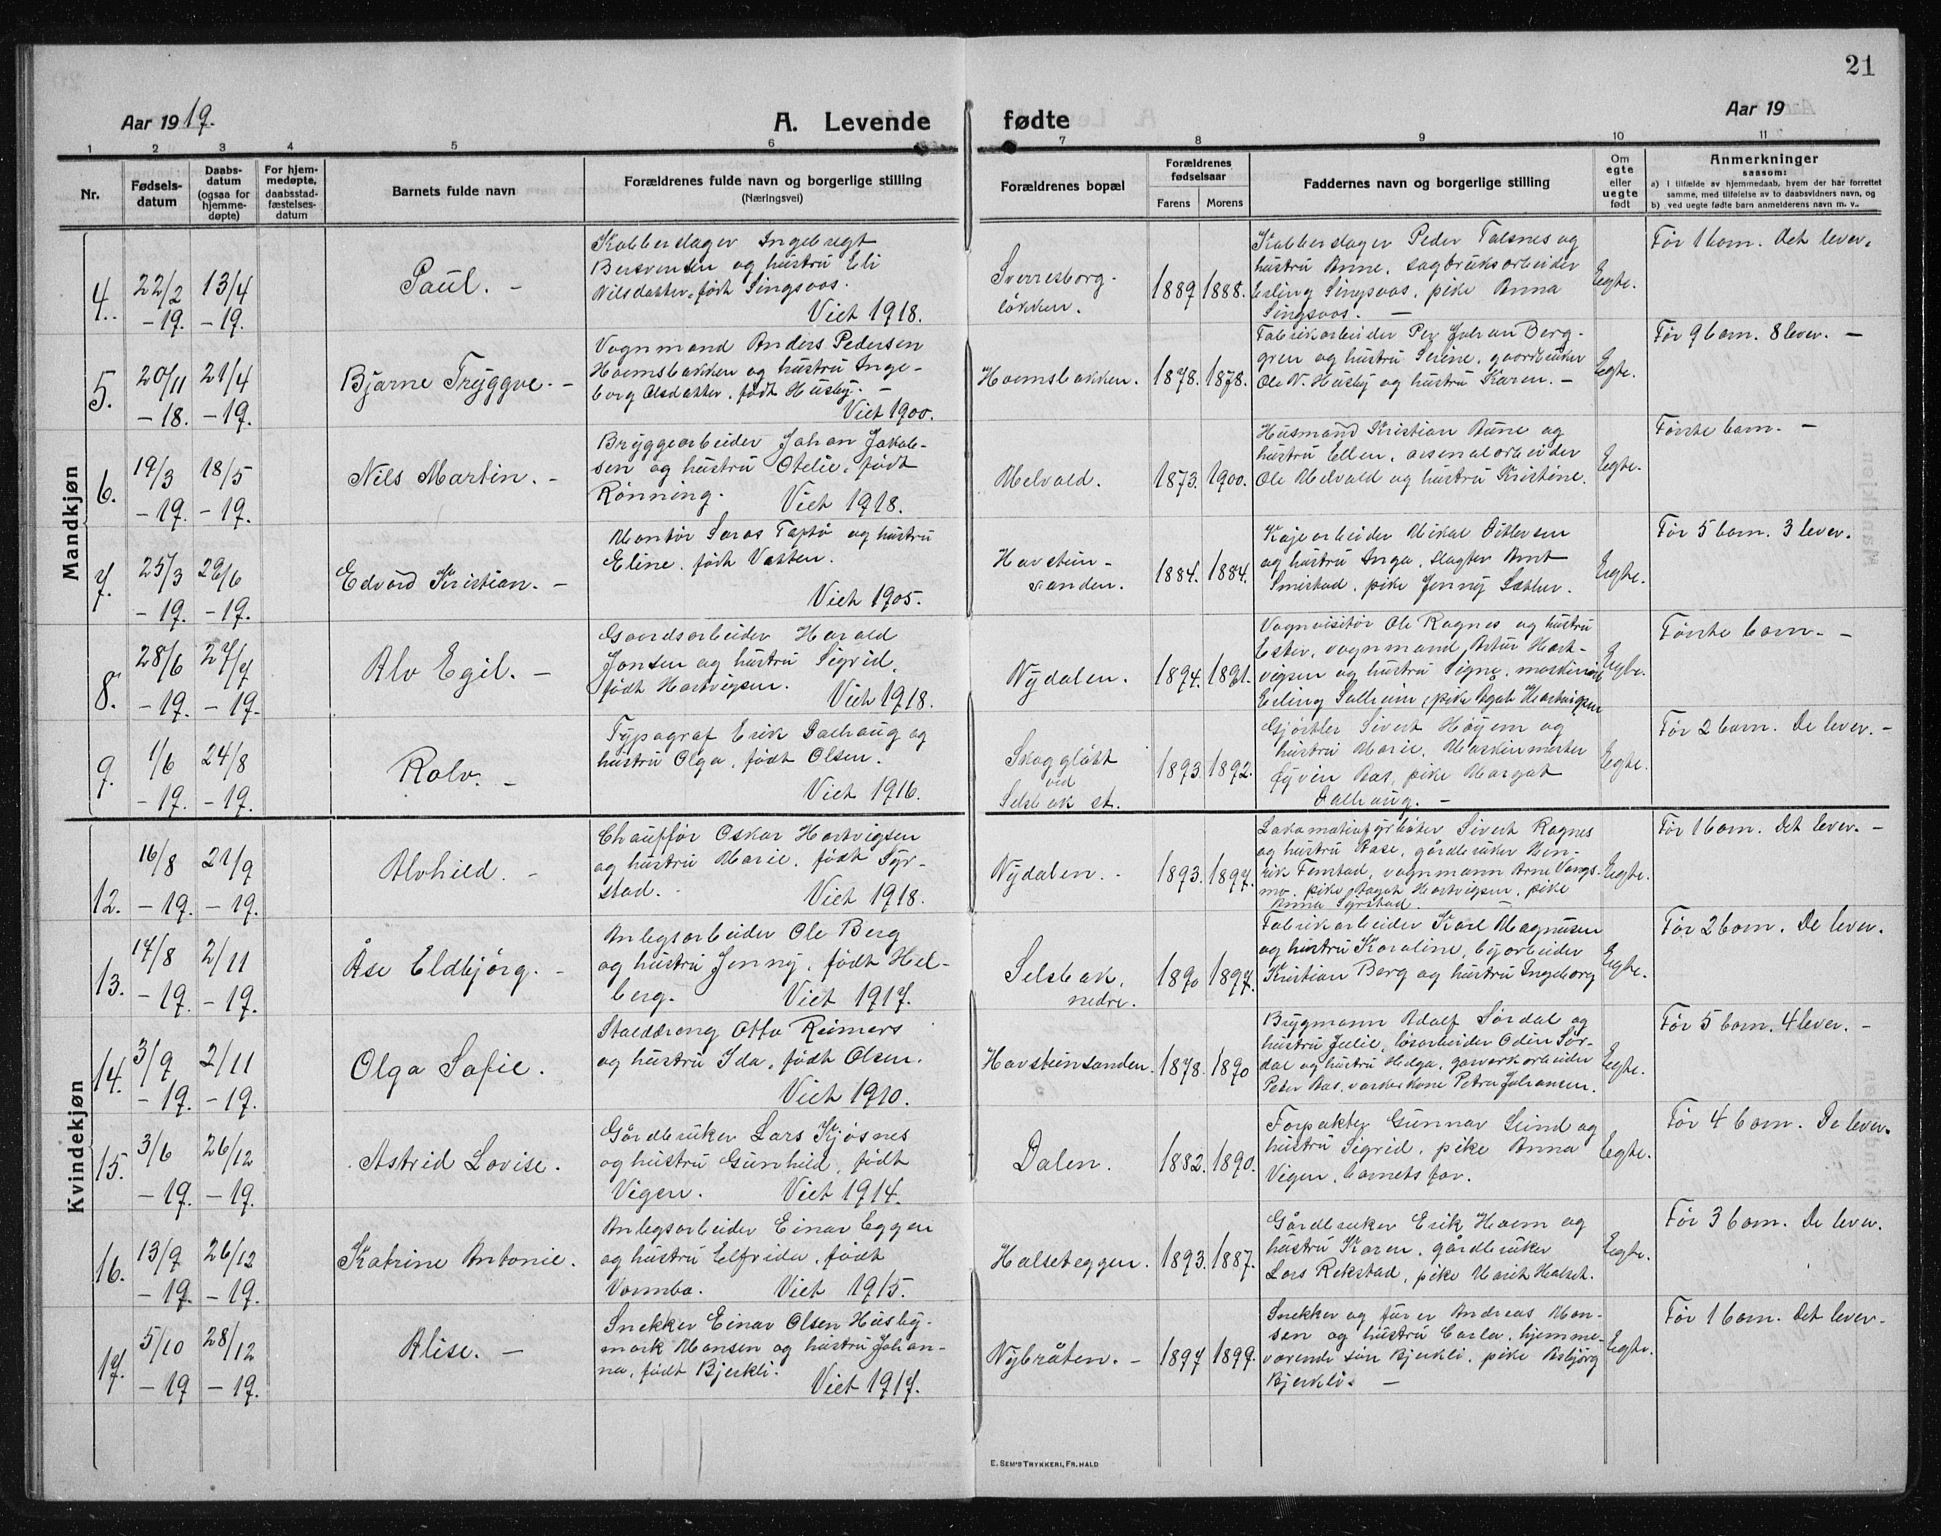 21
Aar 1919.
A. Levende fødte
Aar 19
1 2 3 4 5 6 7 8 9 10 11
Nr.
Fødsels-
datum
Daabs-
datum
(ogsaa for
hjemme-
døpte)
For hjem-
medøpte,
daabsstad-
fæstelses-
datum
Barnets fulde navn
Forældrenes fulde navn og borgerlige stilling
(Næringsvei)
Forældrenes bopæl
Forældrenes
fødselsaar
Farens Morens
Faddernes navn og borgerlige stilling
Om
egte
eller
uegte
født
Anmerkninger
saasom:
a) I tilfælde av hjemmedaab, hvem der har forrettet
samme, med tilføielse av to daabsvidners navn, og
b) ved uegte fødte barn anmelderens navn m. v.
Mandkjøn
4. 22/2 -19. 13/4 -19.
Paul. -
Kobberslager Ingebrigt
Bersvensen og hustru Eli
Nilsdatter, født Singsaas.
Viet 1918.
Sverresborg-
løkken.
1889 1888.
Kobberslager Peder Talsnes og
hustru Anne, sagbruksarbeider
Erling Singsaas, pike Anna
Singsaas. -
Egte.
Før 1 barn. Det lever.
5. 20/11 -18. 21/4 -19.
Bjarne Tryggve. -
Vognmand Anders Pedersen
Hoemsbakken og hustru Inge-
borg Olsdatter, født Husby. -
Viet 1900.
Hoemsbakken.
1878. 1878.
Fabrikarbeider Per Johan Berg-
gren og hustru Serine, gaardbruker
Ole N. Husby og hustru Karen. -
Egte.
Før 9 barn. 8 lever. -
6. 19/3 -19. 18/5 -19.
Nils Martin. -
Bryggearbeider Johan Jakob-
sen og hustru Otelie, født
Rønning. Viet 1918.
Melvald.
1873. 1900.
Husmand Kristian Aune og
hustru Ellen, arsenalarbeider
Ole Melvald og hustru Kristine.
Egte.
Første barn. -
7. 25/3 -19. 22/6 -19.
Edvard Kristian. -
Montør Saras Taftø og hustru
Eline, født Vatten.
Viet 1905.
Havstein-
sanden.
1884. 1884.
Kajearbeider Mikal Ditlevsen
og hustru Inga, slagter Arnt
Smistad, pike Jenny Sæther.
Egte.
Før 5 barn. 3 lever.
8. 28/6 -19. 27/7 -19.
Alv Egil. -
Gaardsarbeider Harald
Jonsen og hustru Sigrid,
født Hartvigsen.
Viet 1918.
Nydalen.
1894. 1891.
Vognvisitør Ole Ragnes og hustru
Ester, vognmand Artur Hart-
vigsen og hustru Signe, maskinist
Erling Solheim, pike Agat Hartvigsen
Egte.
Første barn. -
9. 1/6 -19. 24/8 -19.
Rolv. -
Typograf Erik Dalhaug og
hustru Olga, født Olsen.
Viet 1916.
Skoggløtt
ved
Selsbak st.
1893. 1892.
Gjørtler Sivert Høyem og
hustru Marie, Maskinmester
Øyvin Aas, pike Margot
Dalhaug. -
Egte.
Før 2 barn. De lever. -
Kvindekjøn
12. 16/8 -19. 21/9 -19.
Alvhild. -
Chauffør Oskar Hartvigsen
og hustru Marie, født Syr-
stad. - Viet 1918.
Nydalen. -
1893. 1897.
Lokomotivfyrbøter Sivert Ragnes
og hustru Aase, gårdbruker Hen-
rik Fenstad, vognmann Arne Vangs-
mo, pike Aagot Hartvigsen, pike
Anna Syrstad.
Egte.
Før 1 barn. Det lever. -
13. 17/8 -19. 2/11 -19.
Åse Eldbjørg. -
Anlegsarbeider Ole Berg
og hustru Jenny, født Hel-
berg. Viet 1917.
Selsbak,
nedre.
1890 1897.
Fabrikarbeider Karl Magnusen
og hustru Karoline, byarbeider
Kristian Berg og hustru Ingeborg
Egte.
Før 2 barn. De lever.
14. 3/9 -19. 2/11 -19.
Olga Sofie.
Stalddreng Otto Reimers
og hustru Ida, født Olsen.
Viet 1910.
Havsteinsanden.
1878. 1890
Brygmann Adolf Sørdal og
hustru Julie, løsarbeider Odin Sør-
dal og hustru Helga, gasverkarbeider
Peter Aas, vaskekone Petra Johansen.
Egte.
Før 5 barn. 4 lever. -
15. 3/6 -19. 26/12 -19.
Astrid Lovise.
Gårdbruker Lars Kjøsnes
og hustru Gunhild, født
Vigen. Viet 1914.
Dalen.
1882. 1890.
Forpakter Gunnar Lund og
hustru Sigrid, pike Anna
Vigen, barnets far.
Egte.
Før 4 barn. De lever.
16. 13/9 -19. 26/12 -19.
Katrine Antonie.
Anlegsarbeider Einar Eggen
og hustru Elfrida, født
Vormbo. Viet 1915.
Halseteggen.
1893. 1887.
Gårdbruker Erik Hoem og
hustru Karen, gårdbruker
Lars Rekstad, pike Marit Halset.
Egte.
Før 3 barn. De lever.
17. 5/10 -19 28/12 -19.
Alise. -
Snekker Einar Olsen Husby-
mark Hansen og hustru Johan-
na, født Bjerkli.
Viet 1917.
Nybråten. -
1897 1899.
Snekker og fører Andreas Han-
sen og hustru Carla, hjemme-
værende søn Bjerkli, pike Asbjørg
Bjerkli. -
Egte.
Før 1 barn. Det lever.
E. SEM'S TRYKKERI, FR. HALD